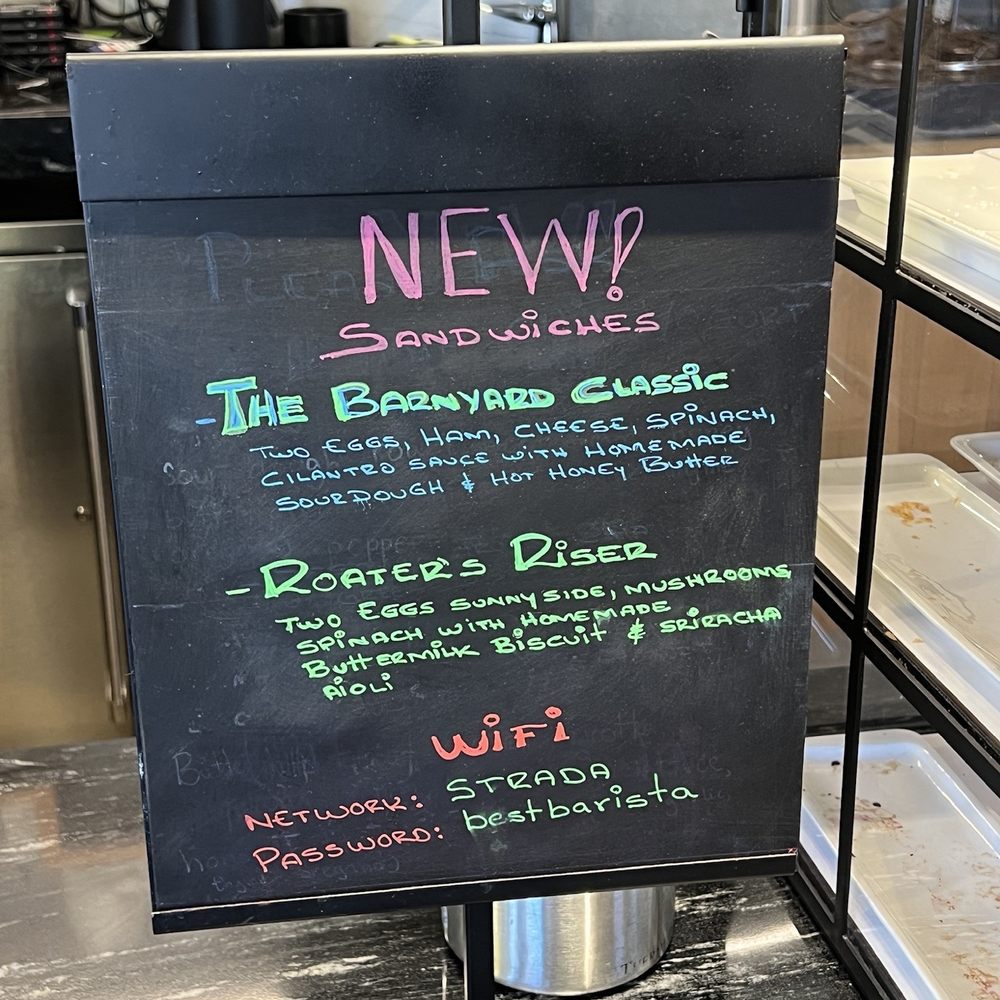 NEW!
SANDWICHES
- THE BARNYARD CLASSIC
TWO EGGS, HAM, CHEESE, SPINACH,
CILANTRO SAUCE WITH HOMEMADE
SOURDOUGH & HOT HONEY BUTTER
- ROATER'S RISER
TWO EGGS SUNNYSIDE, MUSHROOMS
SPINACH WITH HOMEMADE
BUTTERMILK BISCUIT & SRIRACHA
AIOLI
WIFI
NETWORK: STRADA
PASSWORD: bestbarista